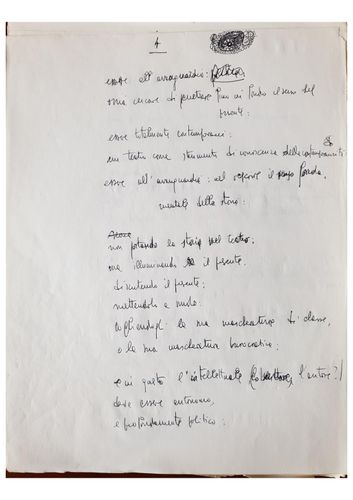 4
essere all'avanguardia:
ora cercare di penetrare fino in fondo il senso del
presente:
essere totalmente contemporanei:
un teatro come strumento di conoscenza della contemporaneità
essere all'avanguardia: nel senso
mentale della storia:
non portando la storia nel teatro;
ma illuminando il presente.
discutendo il presente:
mettendolo a nudo:
togliendogli la sua mascheratura di classe,
e la sua mascheratura burocratica.
e in questo l'intellettuale l'autore?/
deve essere autonomo,
e profondamente politico: